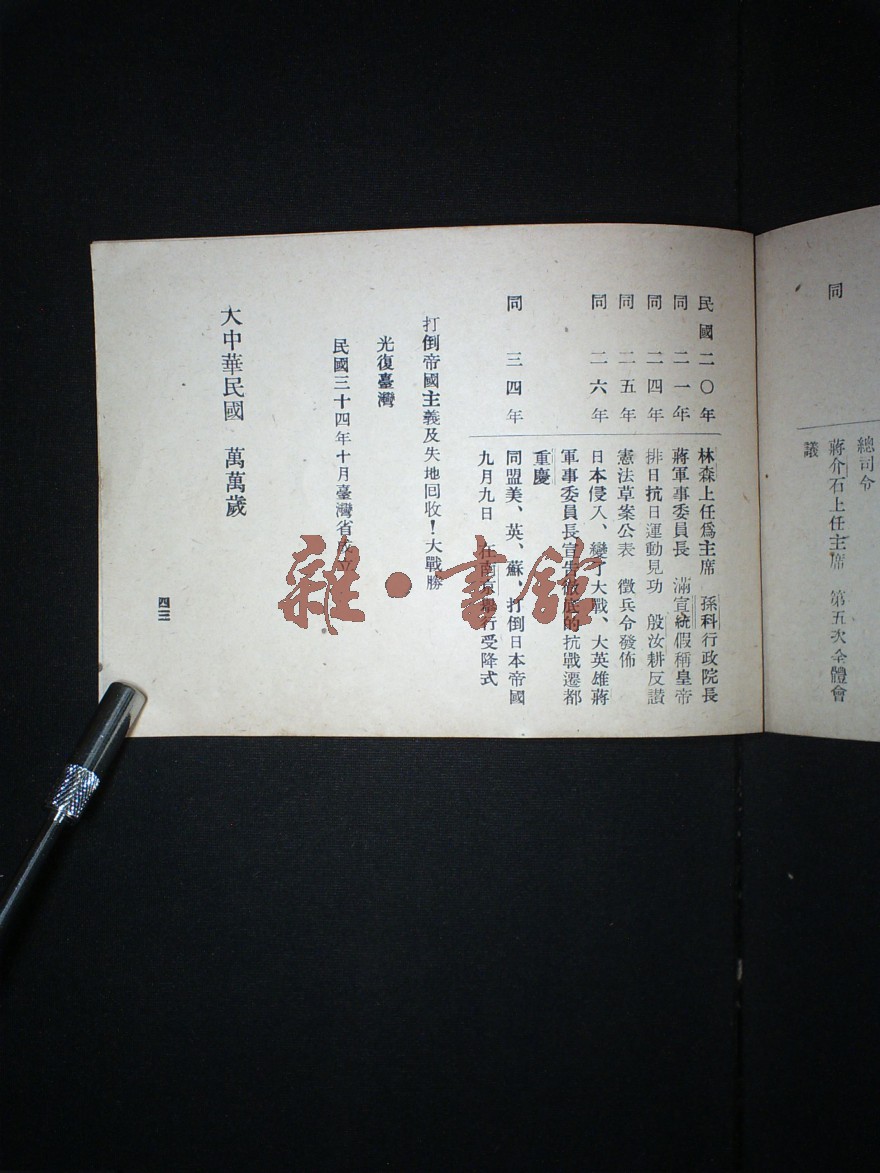 同
總司令
蔣介石上任主席 第五次全體會
議
民國二〇年 林森上任爲主席 孫科行政院長
同 二一年 蔣軍事委員長 滿宣統假稱皇帝
同 二四年 排日抗日運動見功 殷汝耕反讃
同 二五年 憲法草案公表 徵兵令發佈
同 二六年 日本侵入、變了大戰、大英雄蔣
軍事委員長宣告徹底的抗戰遷都
重慶
同 三四年 同盟美、英、蘇、打倒日本帝國
九月九日 在南京舉行受降式
打倒帝國主義及失地回收!大戰勝
光復臺灣
民國三十四年十月臺灣省成立
大中華民國 萬萬歲
四三
雜·書館